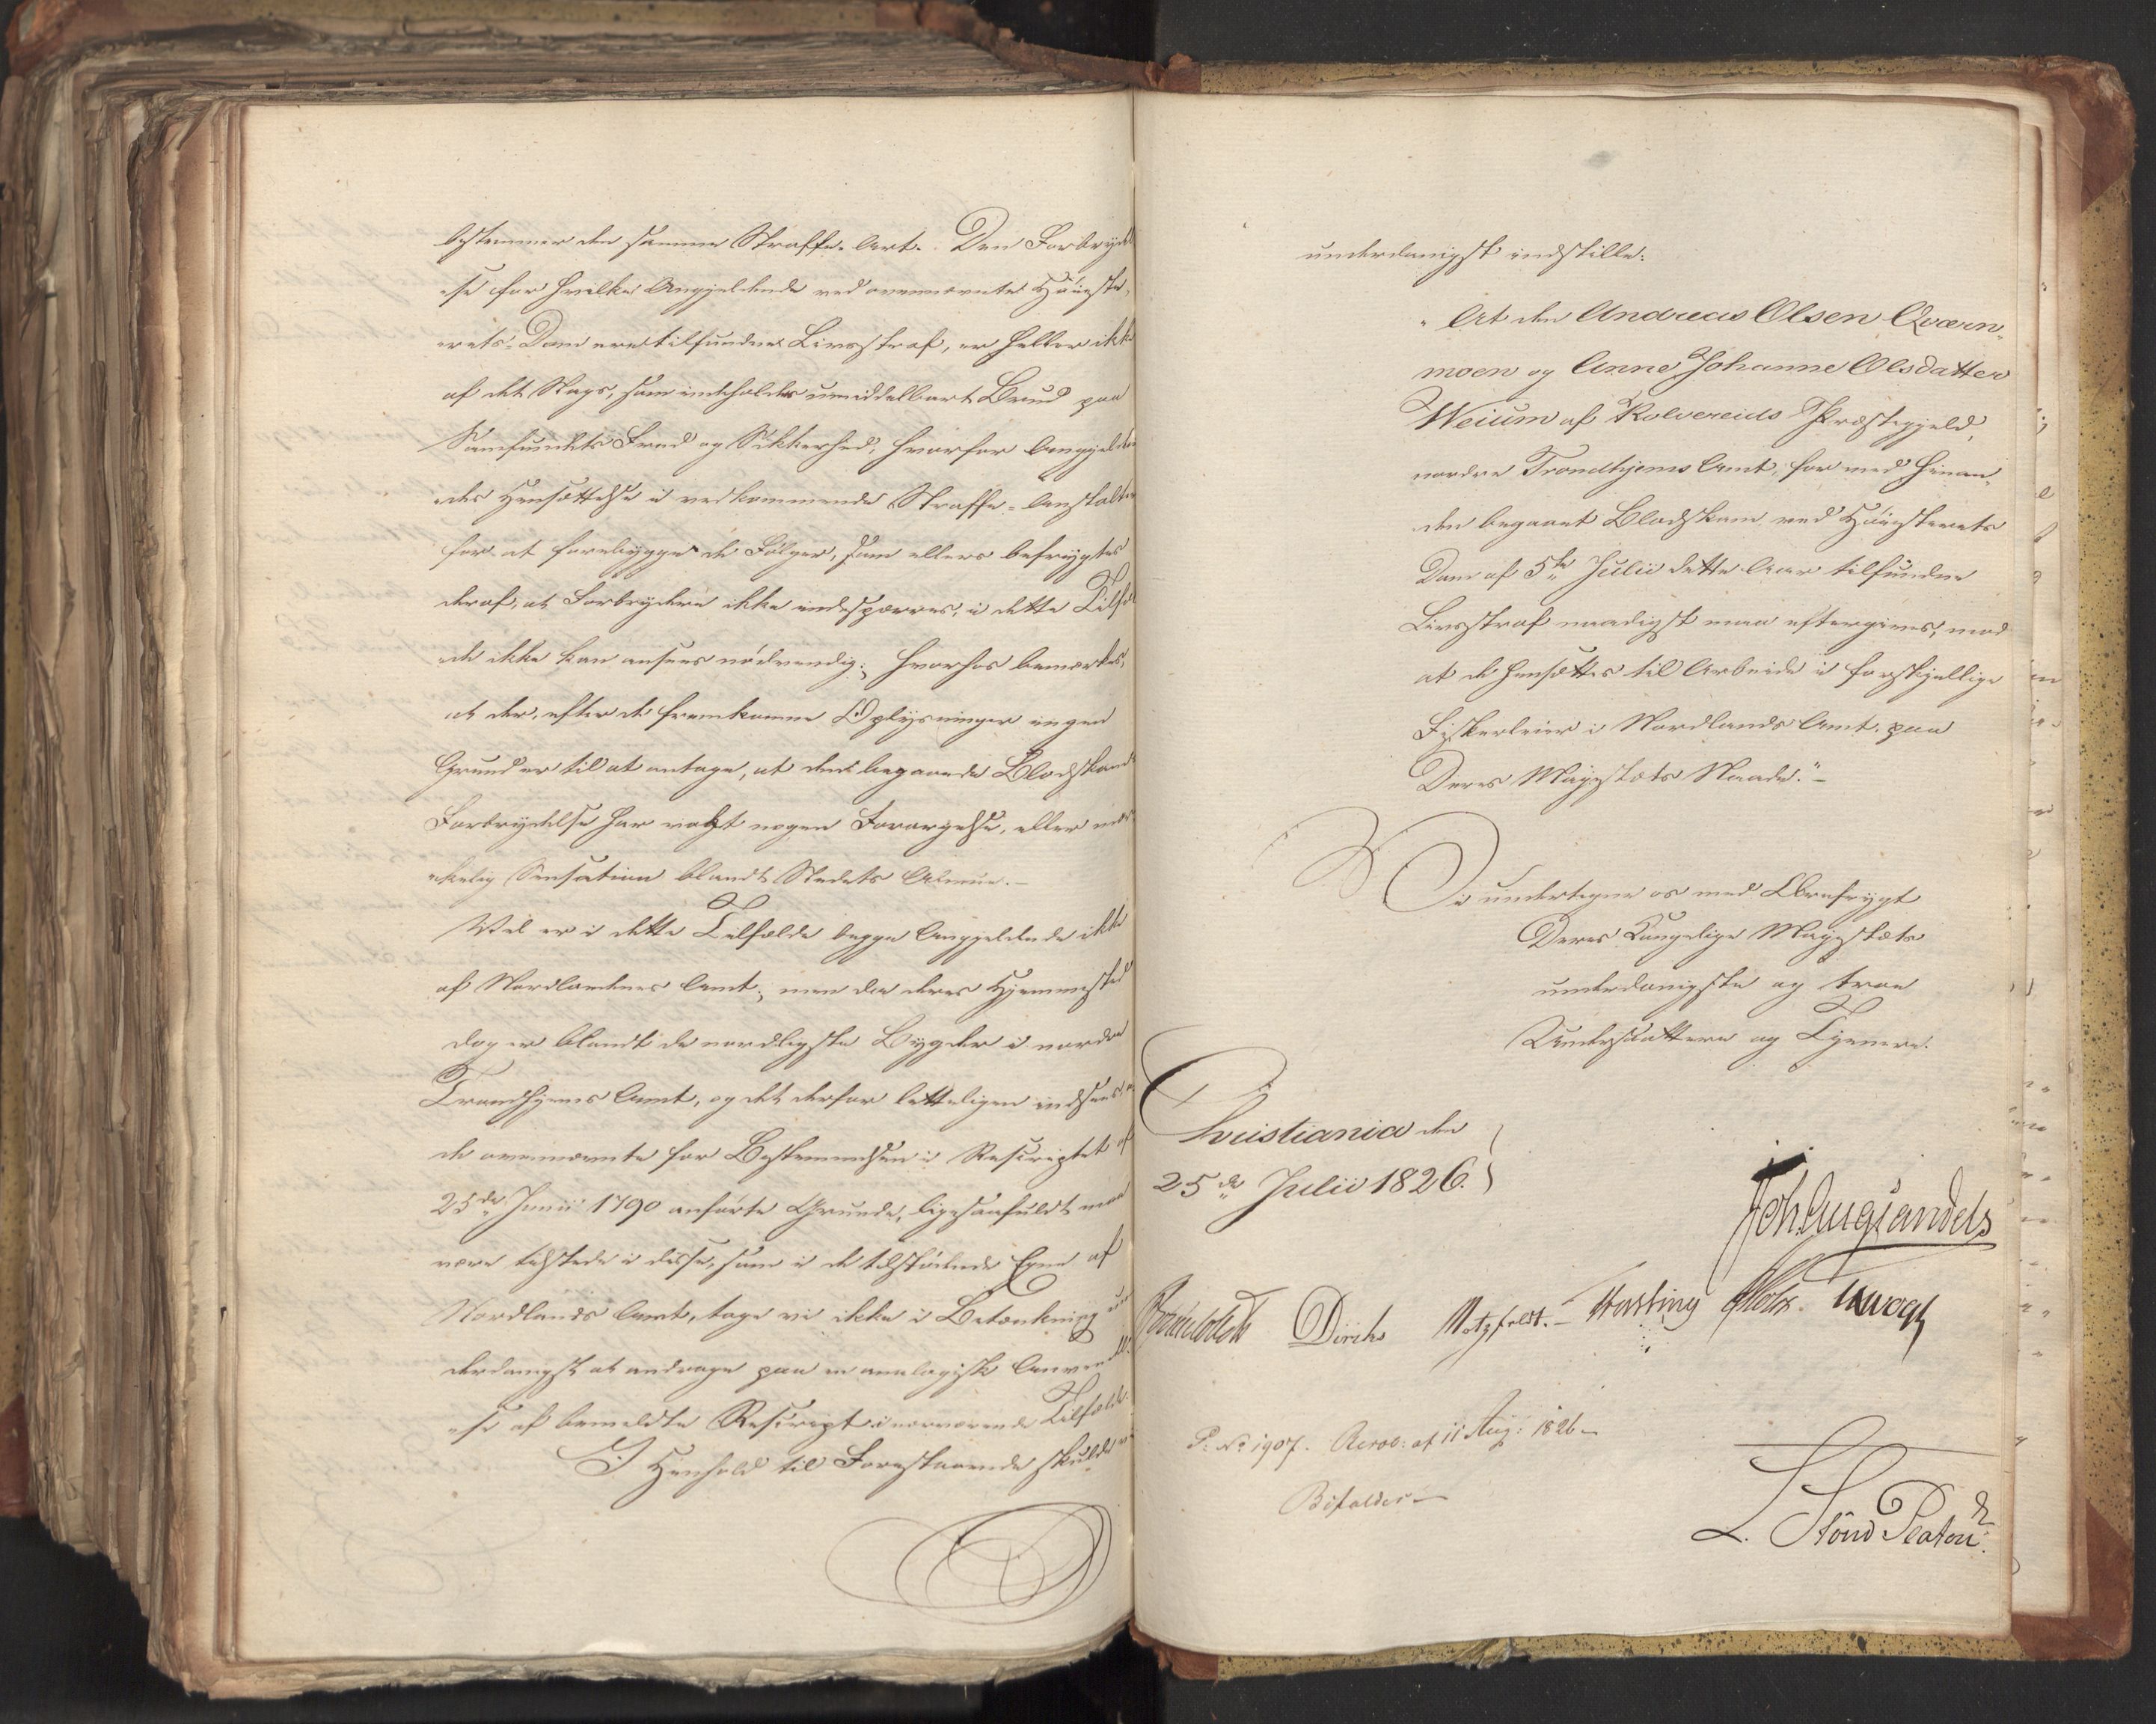 bestemmer den samme Straffe-Art. Den Forbrydel
„se for hvilke Angjeldende ved ovennævnte Höieste„
„rets-Dom ere tilfundne Livsstraf, er heller ikke
af det Slags, som indeholder umiddelbart Brud paa
Samfundets Fred og Sikkerhed, hvorfor Angjelden
„des Hensættelse i vedkommende Straffe-Anstalter
for at forebygge de Fölger, som ellers befrygtes
deraf, at Forbrydere ikke indespærres, i dette Tilfæl
„de ikke kan ansees nödvendig; hvorhos bemærkes,
at der, efter de fremkomne Oplysninger ingen
Grund er til at antage, at den begaaede Blodskams
Forbrydelse har vakt nogen Forargelse, eller mær
„kelig Sensation blandt Stedets Almue.-
Vel er i dette Tilfælde begge Angjeldende ikke
af Nordlandenes Amt; men da deres Hjemmested
dog er blandt de nordligste Bygder i nordre
Trondhjems Amt, og det derfor letteligen indsees, at
de ovennævnte for Bestemmelsen i Rescriptet af
25de Junii 1790 anförte Grunde, ligesaafuldt maa
være tilstede i disse, som i de tilstödende Egne af
Nordlands Amt, tage vi ikke i Betænkning un
derdanigst at andrage paa en analogisk Anvendel
„se af bemeldte Rescript i nærværende Tilfælde.
I Henhold til Forestaaende skulde vi
underdanigst indstille:
„At den Andreas Olsen Qværn„
moen og Anne Johanne Olsdatter
Weium af Kolvereids Præstegjeld,
nordre Trondhjems Amt, for med hinan„
den begaaet Blodskam ved Höiesterets
Dom af 5te Julii dette Aar tilfundne
Livsstraf naadigst maa eftergives, mod
at de hensættes til Arbeide i forskjellige
Fiskerleier i Nordlands Amt paa
Deres Majestæts Naade."-
Vi undertegne os med Ærefrygt
Deres Kongelige Majestæts
underdanigste og troe
Undersaatter og Tjenere.
Christiania den
25de Julii 1826.
Joh. Aug. Sandels
Diriks Motzfeldt.- Hasting Holst. Vogt
P. No 1907. Resol: af 11 Aug: 1826-
Bifaldes-
L. Stoud Platou